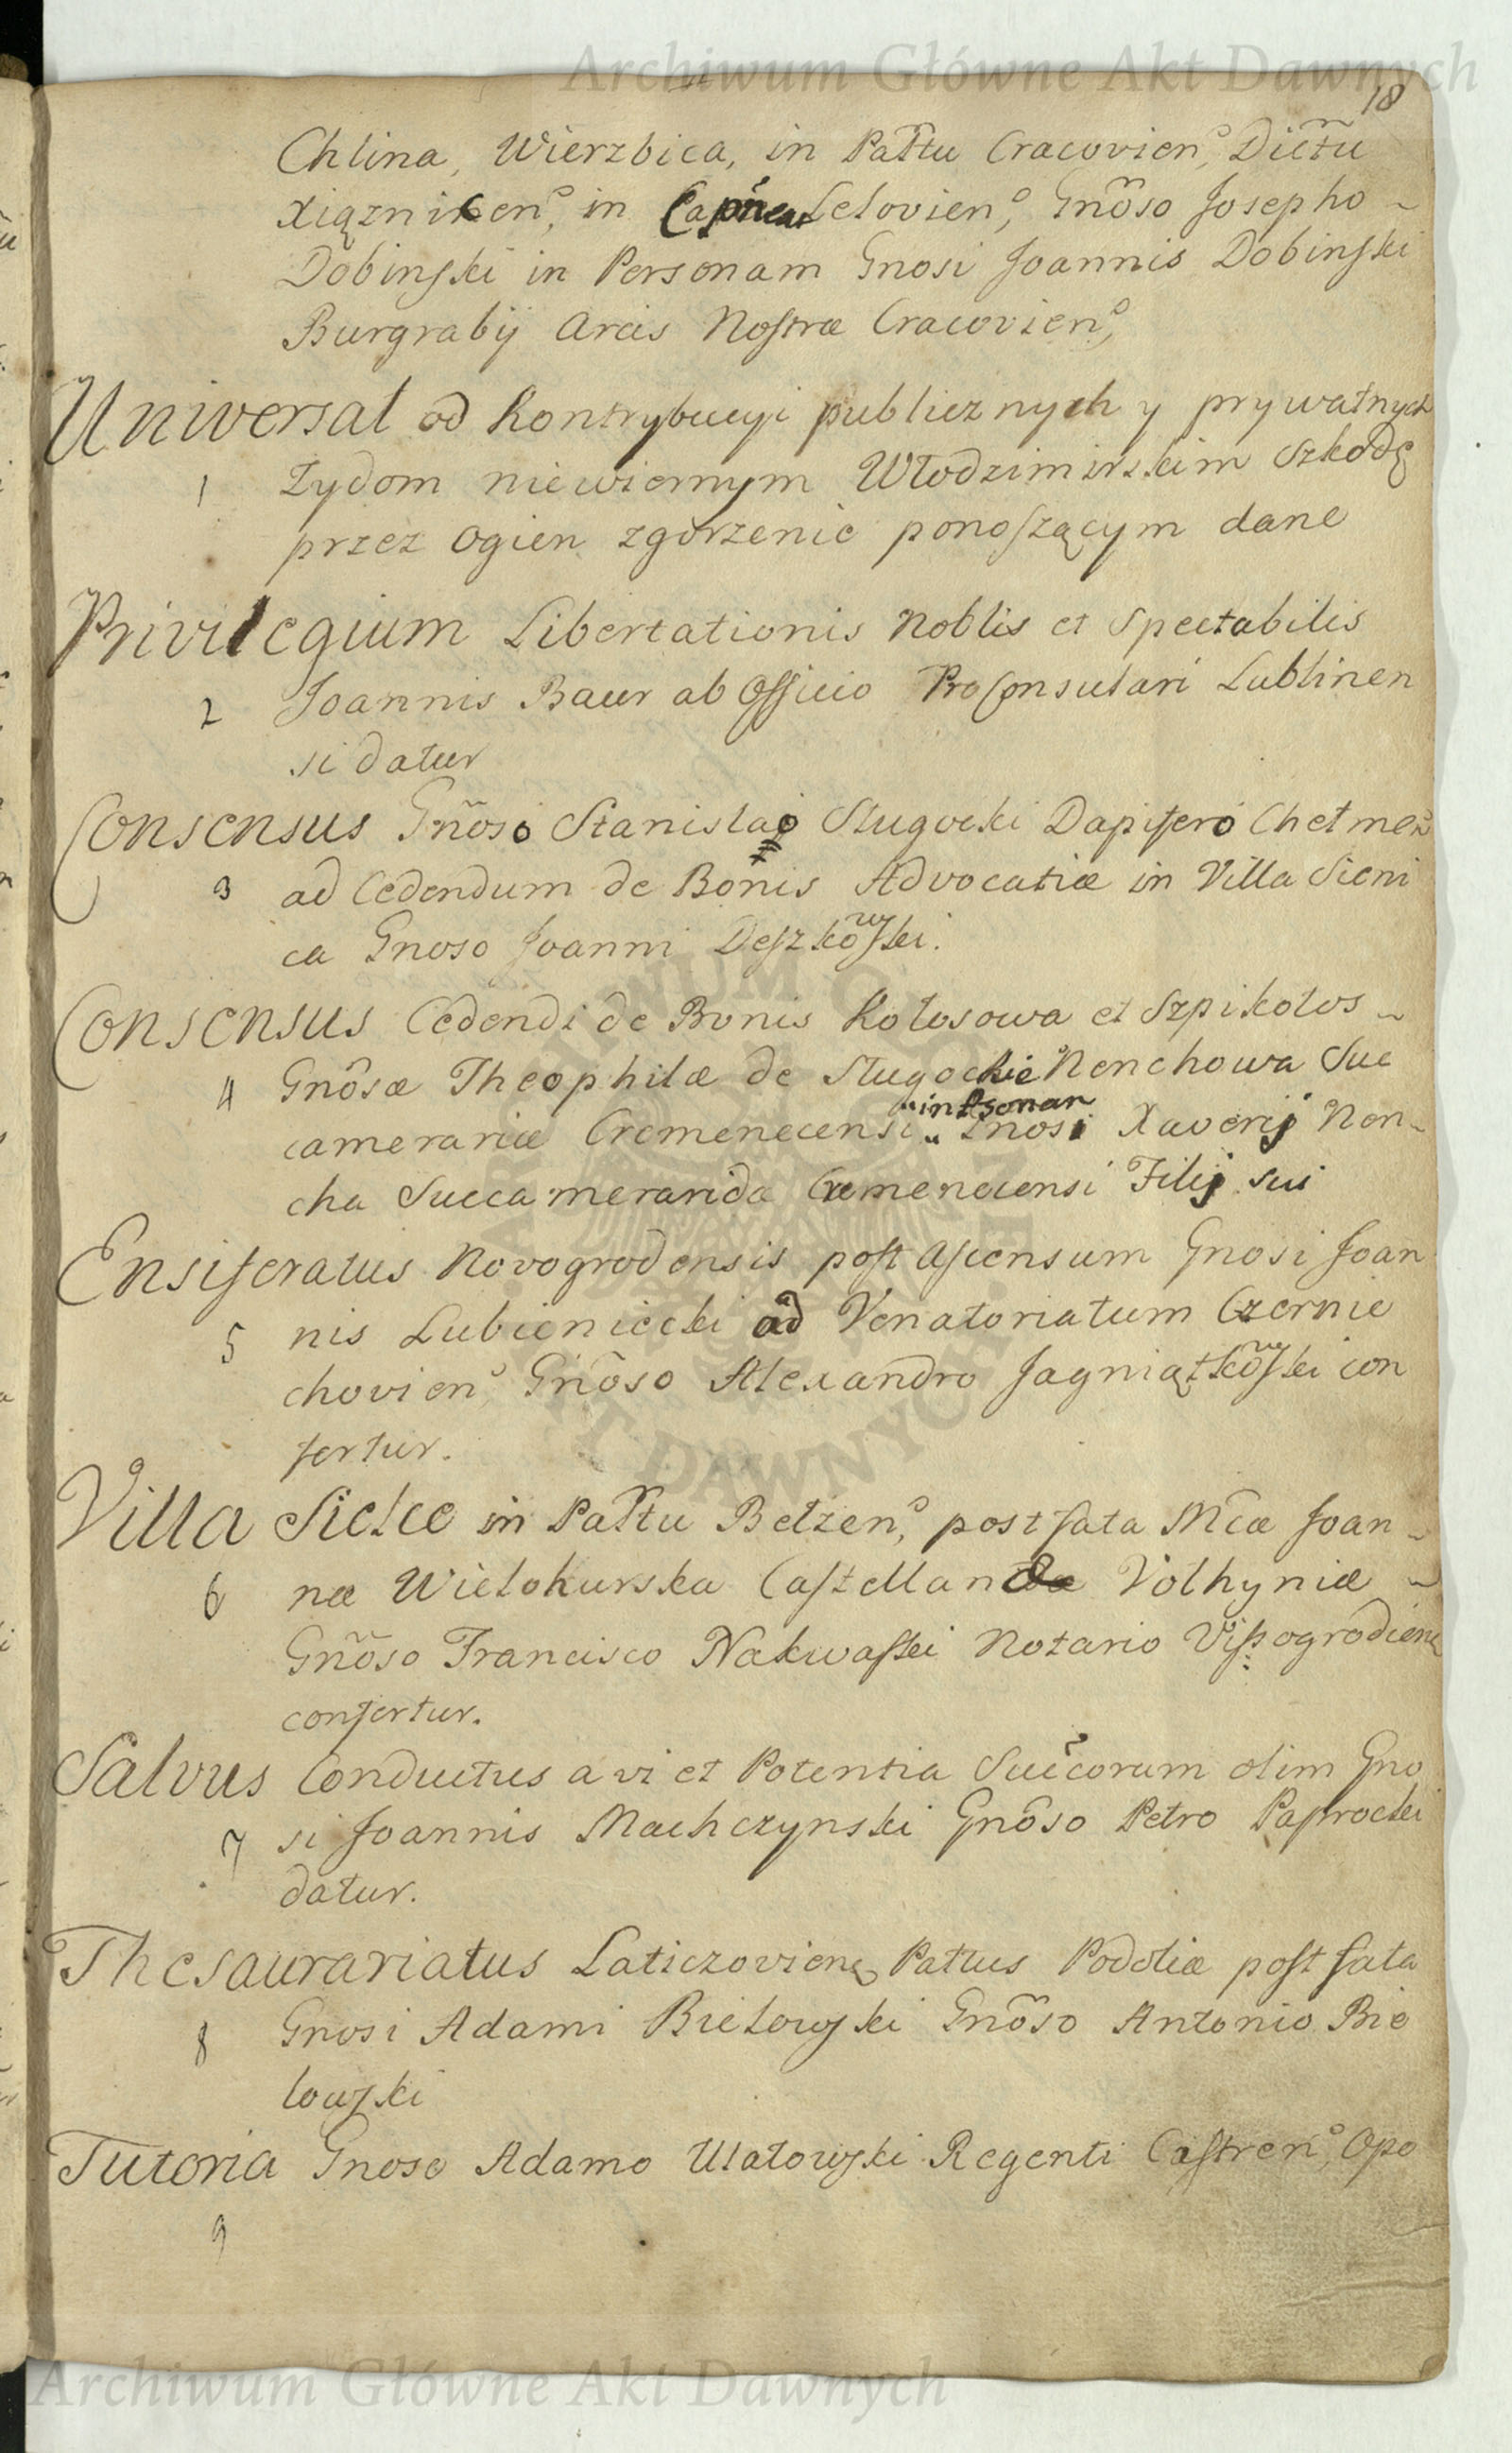 Archiwum Główne Akt Dawnych
18
Chlina, Wierzbica, in Pałtu Cracovien, Dictu
Xiąznicen, in Capnea Lelovien, Gnoso Josepho
Dobinski in Personam Gnosi Joannis Dobinski
Burgrabij Arcis Nostræ Cracovien,
Universal od Kontrybucyi publicznych y prywatnych
1 Zydom niewiernym Włodzimirskim szkodę
przez ogien zgorzenie ponoszącym dane
Privilegium Libertationis Noblis et Spectabilis
2 Joannis Baur ab Officio ProConsulari Lublinen
si datur
Consensus Gnoso Stanislao Sługocki Dapifero Chełmen
3 ad Cedendum de Bonis Advocatiæ in Villa Sieni
ca Gnoso Joanni Deszkowski.
Consensus Cedendi de Bonis Kołosowa et Szpikołos
4 Gnosæ Theophilæ de Sługockie Nenchowa Suc
camerariæ Cremenecensi in Psonam Gnosi Xaverij Nen
cha Succamerarida Cremenecensi Filij sui
Ensiferatus Novogrodensis post Ascensum Gnosi Joan
5 nis Lubieniecki ad Venatoriatum Czernie
chovien Gnoso Alexandro Jagniątkowski con
fertur.
Villa Sielce in Pałtu Bełzen, post fata Mcæ Joan
6 næ Wielohurska Castellana Volhyniæ
Gnoso Francisco Nakwaski Notario Vissogrodien
confertur.
Salvus Conductus a vi et Potentia Succorum olim Gno
7 si Joannis Machczynski Gnoso Petro Paprocki
datur.
Thesaurariatus Laticzovien Pattus Podoliæ post fata
8 Gnosi Adami Bielowski Gnoso Antonio Bie
lowski
Tutoria Gnoso Adamo Ulatowski Regenti Castren, Opo
9
Archiwum Główne Akt Dawnych